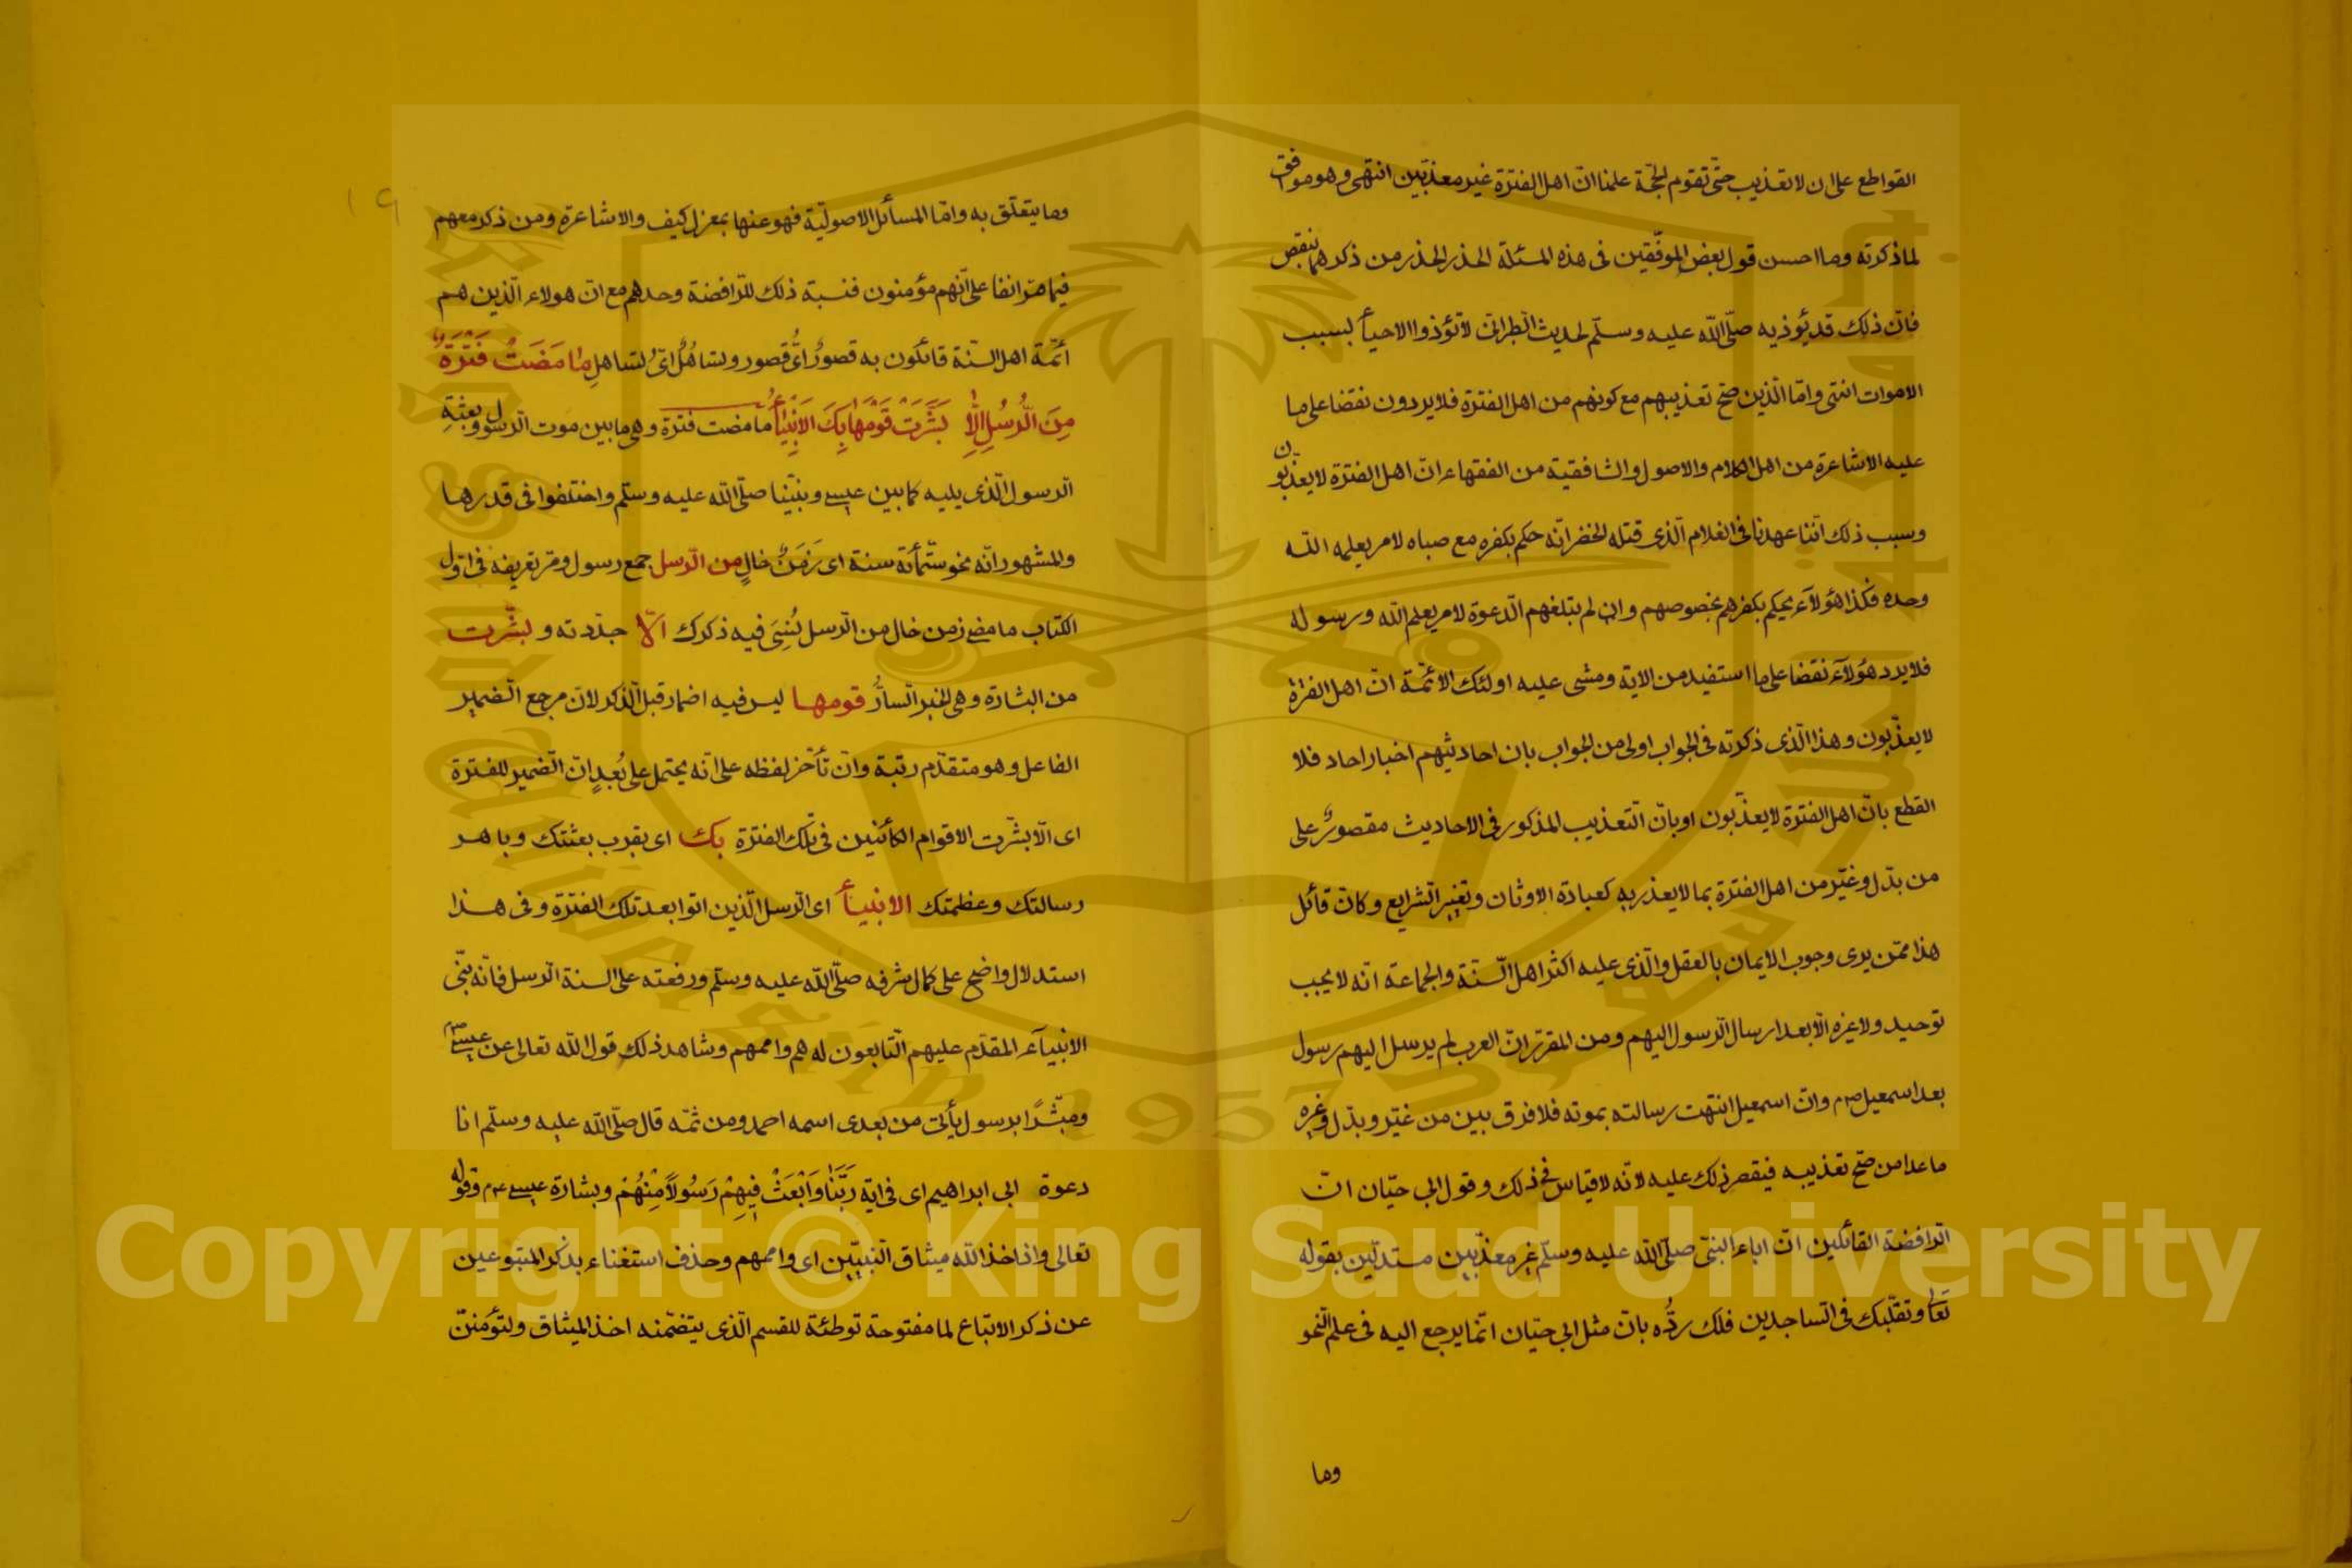 القواطع على ان لا تعذيب حتّى تقوم الحجّة علمنا انّ اهل الفترة غير معذّبين انتهى وهو موافق
لما ذكرته وما احسن قول بعض الموفّقين فى هذه المسئلة الحذر الحذر من ذكرهما بنقص
فانّ ذلك قد يؤذيه صلّى اللّه عليه وسلّم لحديث الطبرانى لا تؤذوا الاحيأ بسبب
الاموات انتهى وامّا الّذين صحّ تعذيبهم مع كونهم من اهل الفترة فلا يردون نقضا على ما
عليه الاشاعرة من اهل الكلام والاصول والشافعية من الفقهاء انّ اهل الفترة لا يعذّبون
وسبب ذلك انّنا عهدنا فى الغلام الّذى قتله الخضر انّه حكم بكفره مع صباه لامر يعلمه اللّه
وحده فكذا هؤلآء يحكم بكفرهم بخصوصهم وان لم يتلغهم الدّعوة لامر يعلم اللّه ورسوله
فلا يرد هؤلآء نقضا على ما استفيد من الاية ومشى عليه اولئك الائمّة انّ اهل الفترة
لا يعذّبون وهذا الّذى ذكرته فى الجواب اولى من الجواب بان احاديثهم اخبار احاد فلا
القطع بانّ اهل الفترة لا يعذّبون او بانّ التّعذيب المذكور فى الاحاديث مقصورٌ على
من بدّل وغيّر من اهل الفترة بما لا يعذر به كعبادة الاوثان وتغيير الشّرايع وكانّ قأئل
هذا ممّن يرى وجوب الايمان بالعقل والّذى عليه اكثر اهل السّنّة والجماعة انّه لا يجب
توحيد ولا غيره الّا بعد ارسال الرّسول اليهم ومن المقرّر انّ العرب لم يرسل اليهم رسول
بعد اسمعيل عم وانّ اسمعيل انتهت رسالته بموته فلا فرق بين من غيّر وبدّل وغيره
ما عدا من صحّ تعذيبه فيقصر ذلك عليه لانّه لا قياس فى ذلك وقول ابى حيّان انّ
الرّافضة القائلين انّ اباء النبىّ صلّى اللّه عليه وسلّم غير معذّبين مستدلّين بقوله
تعا وتقلّبك فى السّاجدين فلك ردُّه بانّ مثل ابى حيّان انّما يرجع اليه فى علم النّحو
وما
١٩
وما يتعلّق به وامّا المسأئل الاصوليّة فهو عنها بمعزل كيف والاشاعرة ومن ذكر معهم
فيما مرّ انفا على انّهم مؤمنون فنسبة ذلك للرّافضة وحدهم مع انّ هولاء الّذين هم
أئمّة اهل السّنّة قائلون به قصورٌ اىُّ قصور وتساهُلٌ اىُّ تساهلِ مٰا مَضَتْ فَتْرَةٌ
مِنَ الرُّسُلِ اِلّٰا بَشَّرَتْ قَوْمَهٰا بِكَ الاَنْبِيٰأُ ما مضت فترة وهى ما بين موت الرّسول وبعثةِ
الرّسول الّذى يليه كما بين عيسى ونبيّنا صلّى اللّه عليه وسلّم واختلفوا فى قدرها
والمشهور انّه نحو ستّمأئة سنة اى زَمَنٌ خالٍ من الرّسل جمع رسول ومرّ تعريفه فى اوّل
الكتاب ما مضى زمن خال من الرّسل نُسِىَ فيه ذكرك الّا جدّدته و بشّرت
من البشارة وهى الخبر السّارُّ قومها ليس فيه اضمار قبل الذّكر لانّ مرجع الضّمير
الفاعل وهو متقدّم رتبة وانّ تأخّر لفظه على انّه يحتمل على بُعدٍ انّ الضّمير للفترة
اى الّا بشّرت الاقوام الكأئنين فى تلك الفترة بك اى بقرب بعثتك وباهر
رسالتك وعظمتك الانبيأ اى الرّسل الّذين اتوا بعد تلك الفترة وفى هذا
استدلال واضح على كمال شرفه صلّى اللّه عليه وسلّم ورفعته على السنة الرّسل فانّه نبىّ
الانبيآء المقدّم عليهم التّابعون له هم واممهم وشاهد ذلك قول اللّه تعالى عن عيسى عم
ومبشّرًا برسول يأتى من بعدى اسمه احمد ومن ثمّه قال صلّى اللّه عليه وسلّم انا
دعوة ابى ابراهيم اى فى اية رَبَّنٰا وَابْعَثْ فِيهِمْ رَسُولاً مِنْهُمْ وبشارة عيسى عم وقوله
تعالى واذ اخذ اللّه ميثاق النّبيّين اى واممهم وحذف استغناء بذكر المتبوعين
عن ذكر الاتباع لما مفتوحة توطئة للقسم الّذى يتضمّنه اخذ الميثاق ولتؤمننّ
Copyright © King Saud University
1957